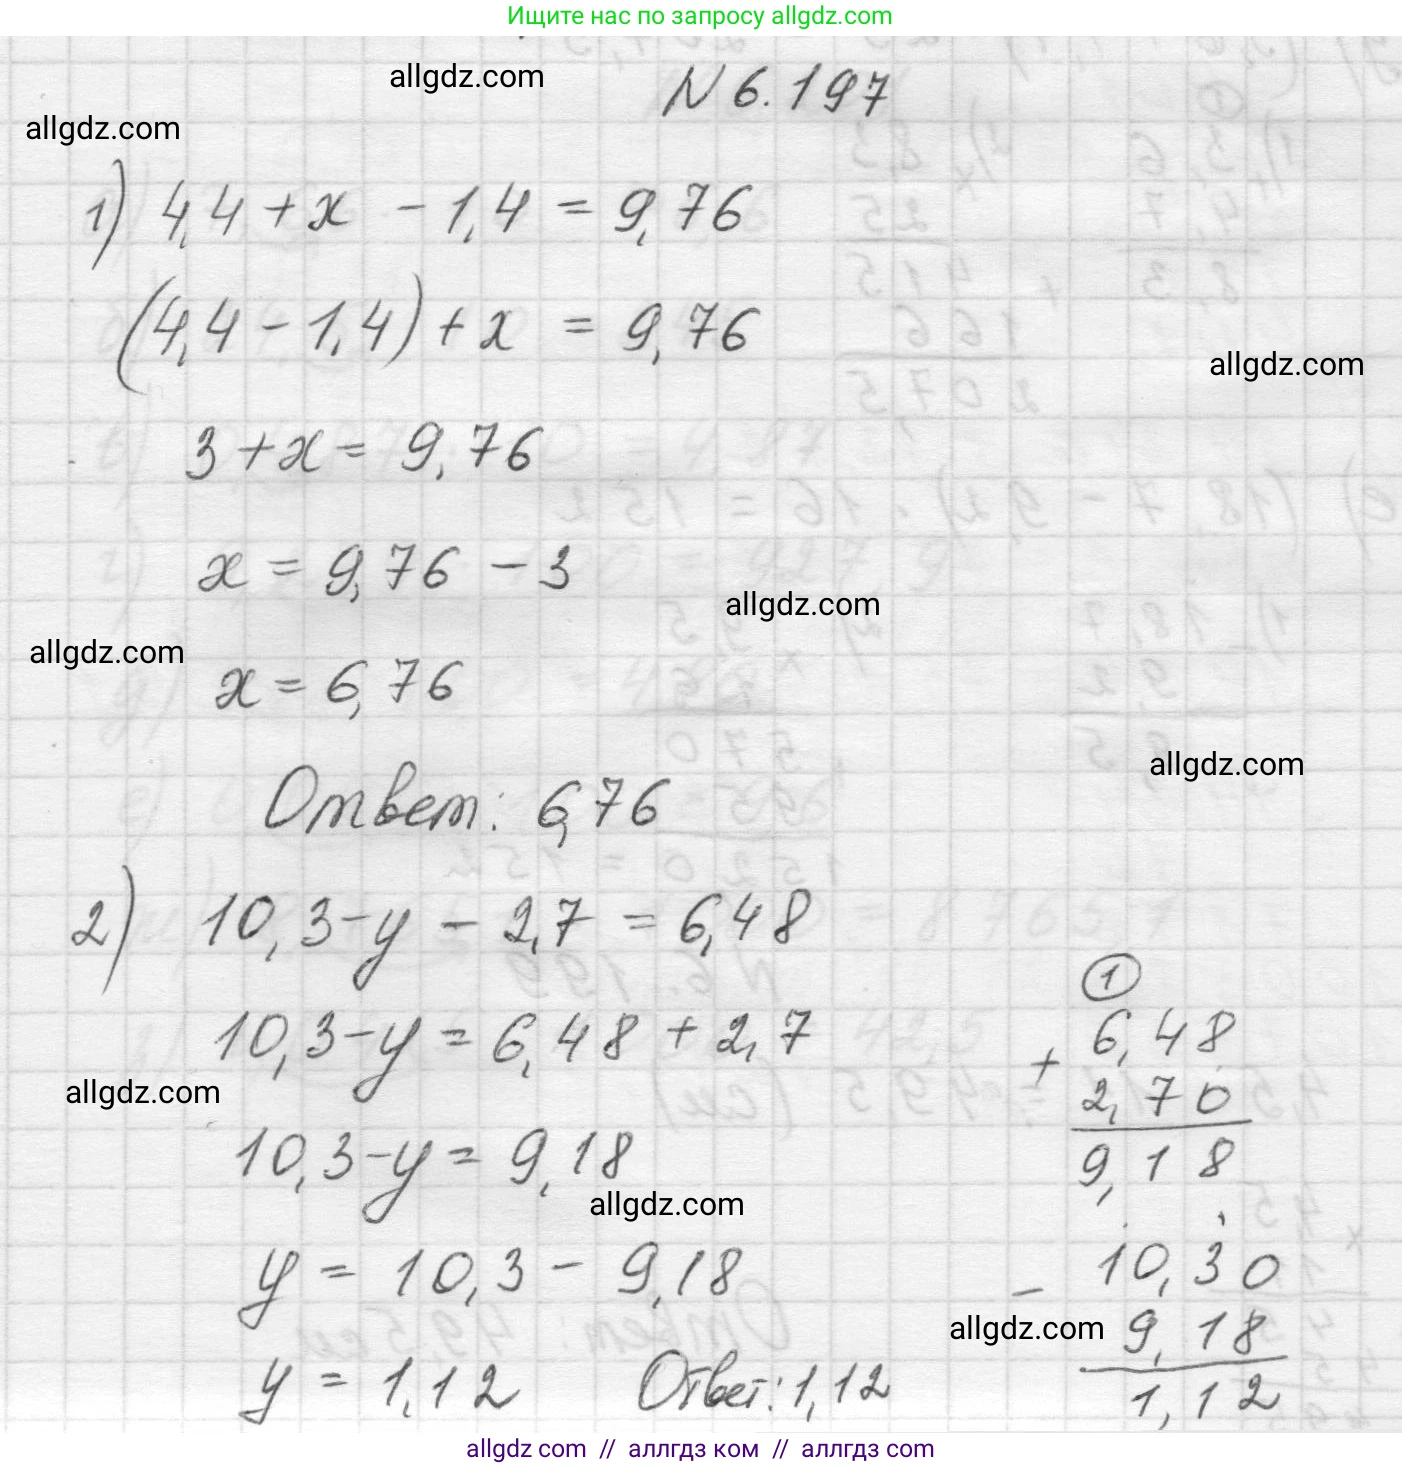 Ищите нас по запросу allgdz.com
allgdz.com
N 6.197
allgdz.com
1) 4,4 + x - 1,4 = 9,76
(4,4 - 1,4) + x = 9,76
allgdz.com
3 + x = 9,76
x = 9,76 - 3
allgdz.com
allgdz.com
x = 6,76
allgdz.com
Ответ: 6,76
2) 10,3 - y - 2,7 = 6,48
10,3 - y = 6,48 + 2,7
1
+ 6,48
2,70
9,18
allgdz.com
10,3 - y = 9,18
allgdz.com
y = 10,3 - 9,18
- 10,30
9,18
1,12
allgdz.com
y = 1,12 Ответ: 1,12
allgdz com // аллгдз ком // allgdz com